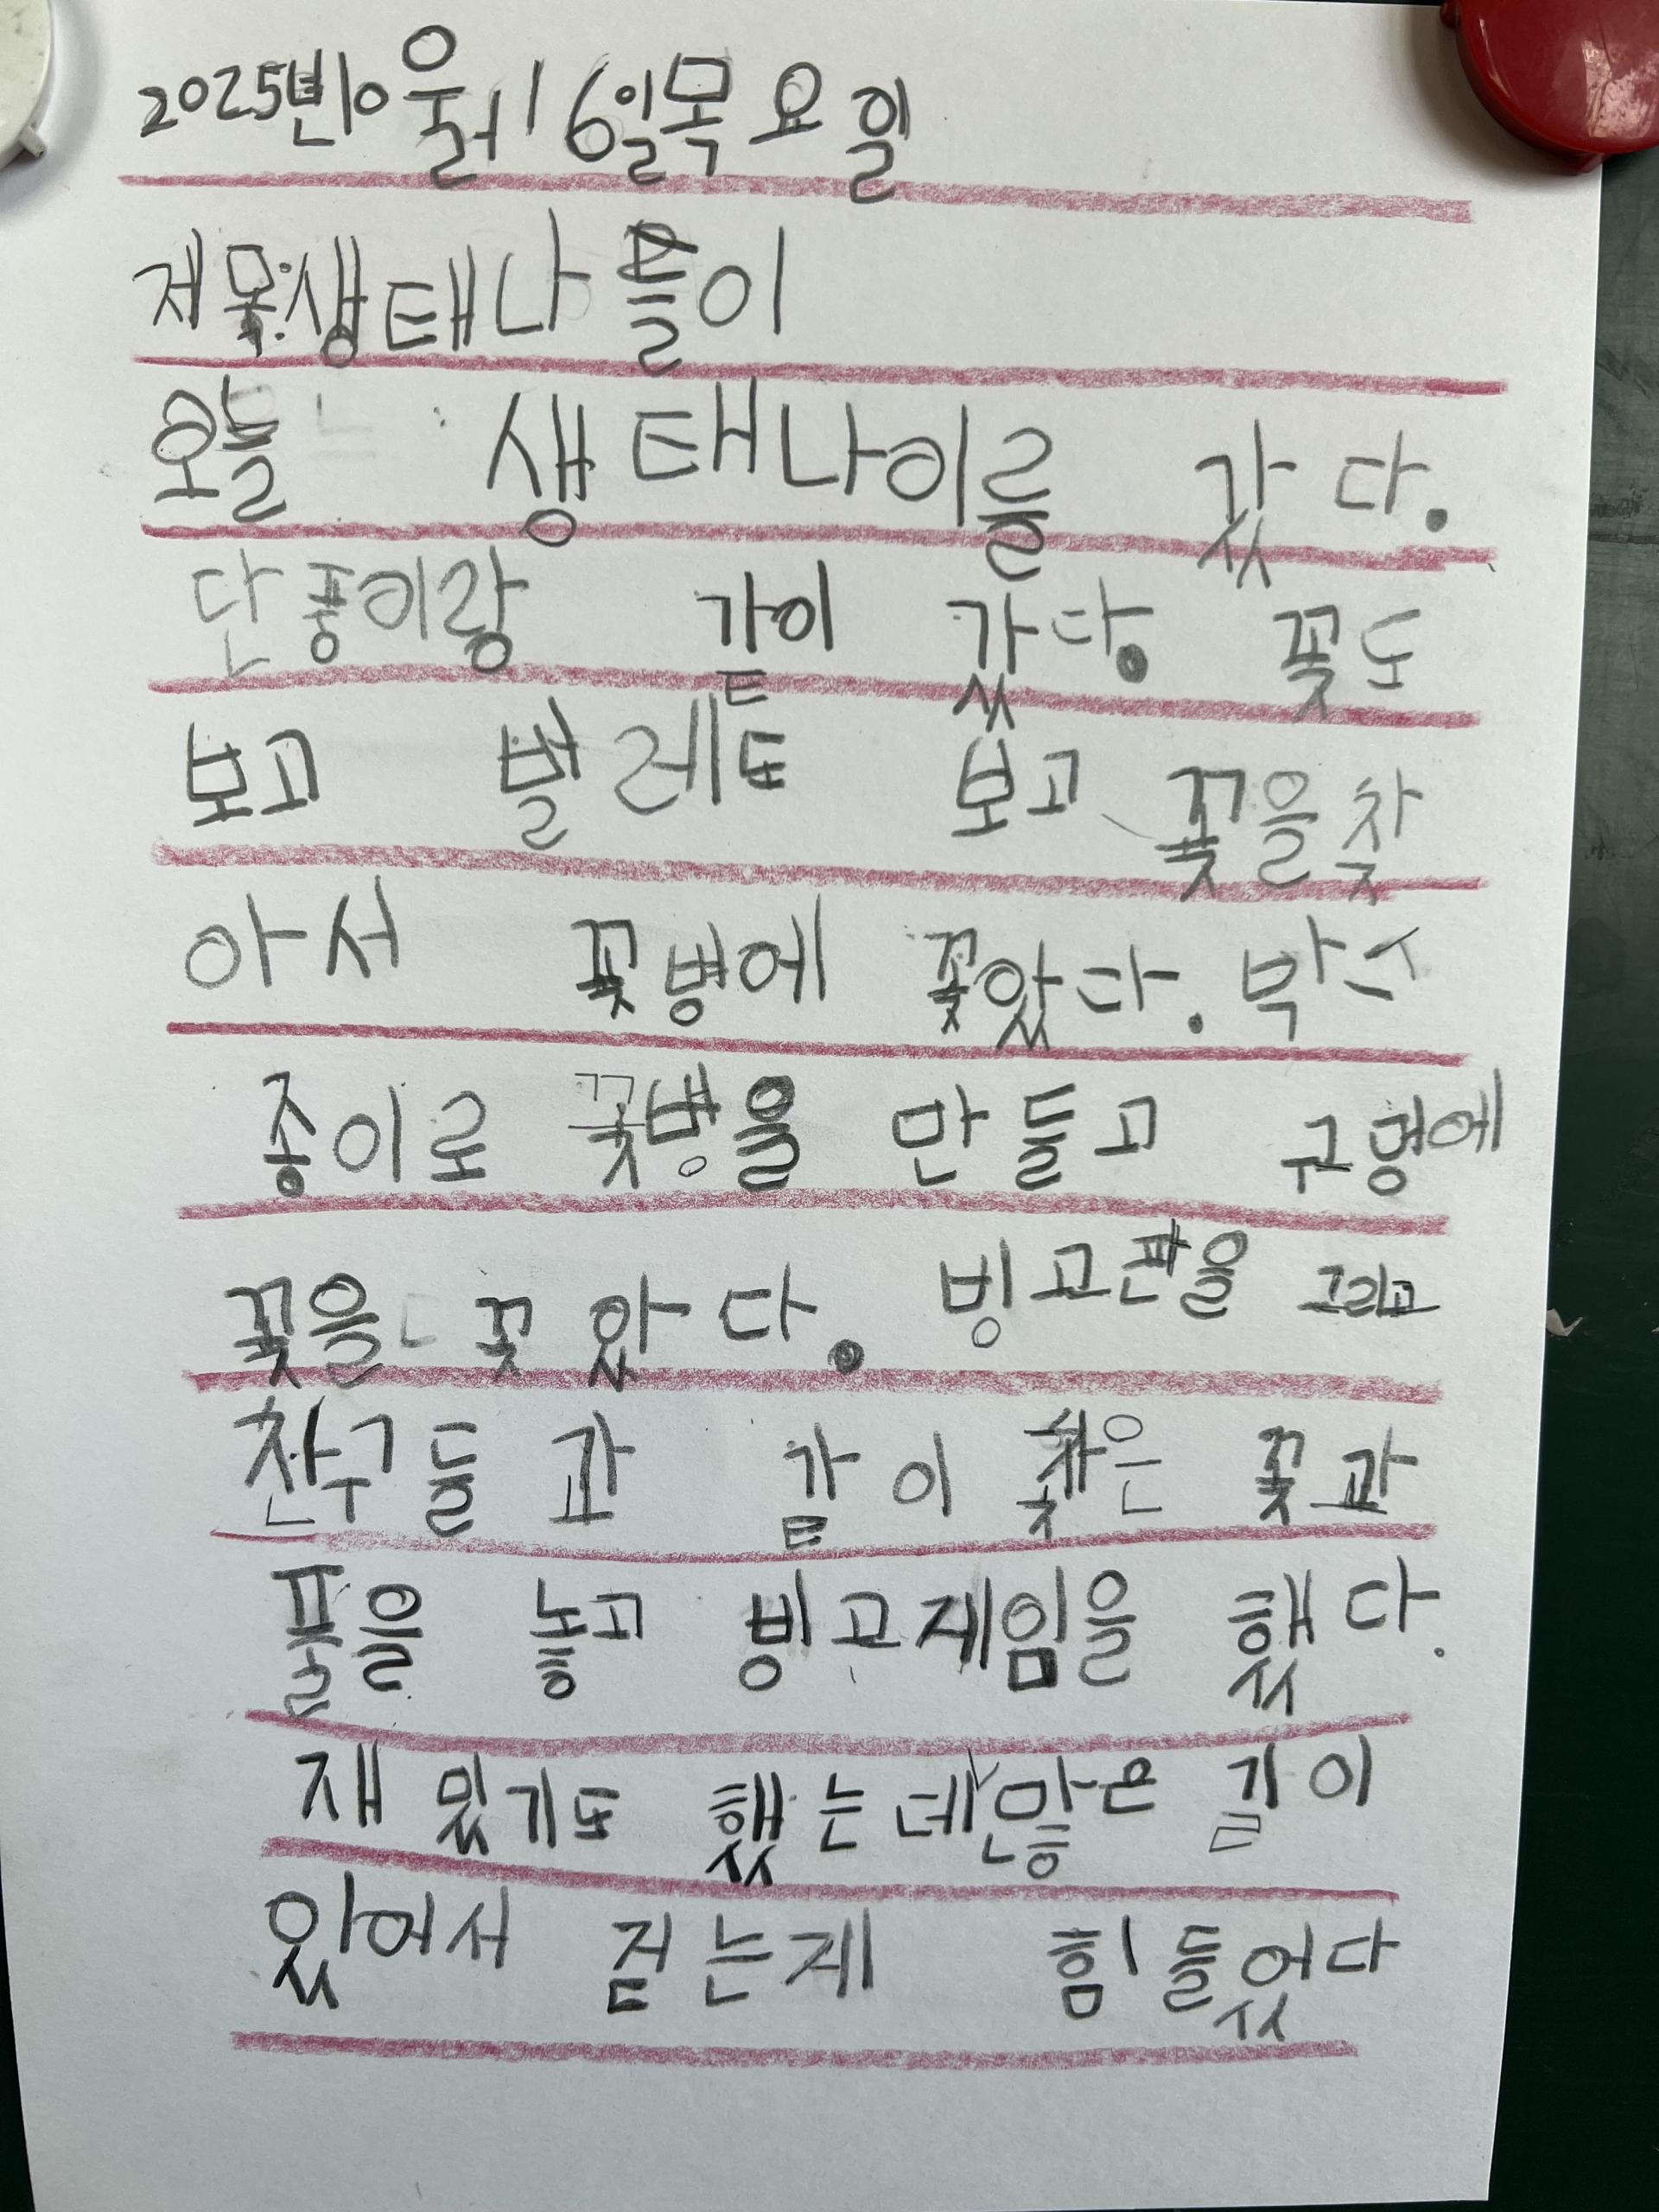 2025년10월16일목요일
제목:생태나들이
오늘 생태나이를 갔다.
단풍이랑 같이 갔다. 꽃도
보고 벌레도 보고 꽃을찾
아서 꽃병에 꽃았다. 박스
종이로 꽃병을 만들고 구멍에
꽃을 꽃았다. 빙고판을 그리고
친구들과 같이 찾은 꽃과
풀을 놓고 빙고게임을 했다.
재밌기도 했는데 많은 길이
있어서 걷는게 힘들었다